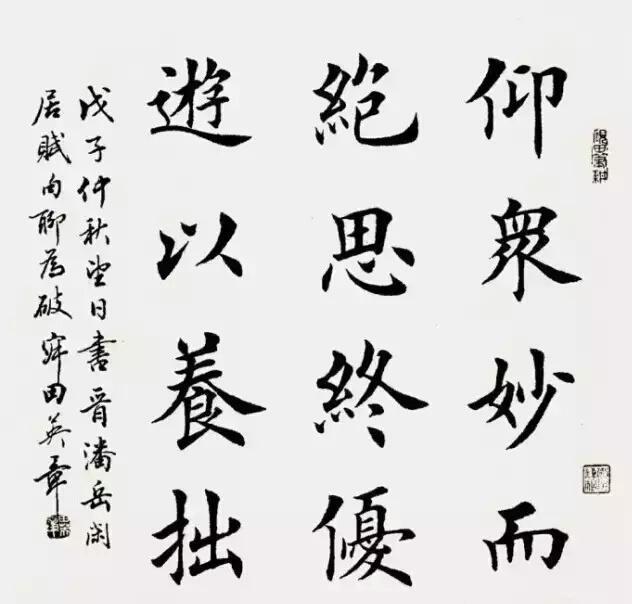 仰衆妙而
絶思終優
遊以養拙
戊子仲秋望日書晉潘岳闲
居賦句聊為破寂田英章